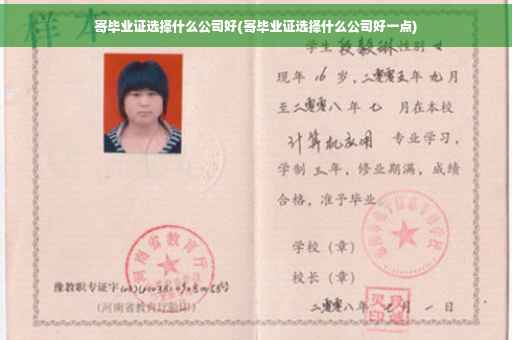 寄毕业证选择什么公司好(寄毕业证选择什么公司好一点)
样本
学生 段毅琳 性别 女
现年 16 岁,二零零五年 九月
至二零零八年 七 月在本校
计算机应用 专业学习,
学制 三 年,修业期满,成绩
合格,准予毕业
学校(章)
河南省教育厅
校长(章)
豫教职专证字
(河南省教育厅验印)
二零零八年 七 月 一 日